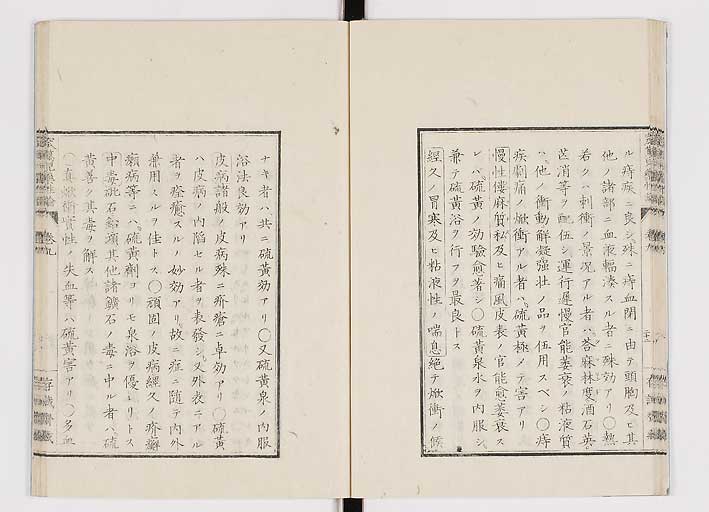 ル痔疾ニ良シ殊ニ痔血閉ニ由テ頭胸及ヒ其
他ノ諸部ニ血液輻湊スル者ニ殊効アリ〇熱
若クハ刺衝ノ景況アル者ハ答麻林度酒石英
芒消等ヲ配伍シ運行遅慢官能萎衰ノ粘液質
ハ他ノ衝動解凝强壮ノ品ヲ伍用スベシ〇痔
疾劇痛ノ焮衝アル者ハ硫黄極メテ害アリ
慢性僂麻質私及ヒ痛風皮表ノ官能愈萎衰ス
レバ硫黄ノ効驗愈著シ〇硫黄泉水ヲ内服シ
兼テ硫黄浴ヲ行フヲ最良トス
經久ノ胃寒及ヒ粘液性ノ喘息絶テ焮衝ノ候
ナキ者ハ共ニ硫黄効アリ〇又硫黄泉ノ内服
浴法良効アリ
皮病諸般ノ皮病殊ニ疥瘡ニ卓効アリ〇硫黄
ハ皮病ノ内陷セル者ヲ表發シ又外表ニアル
者ヲ療癒スルノ妙効アリ故ニ症ニ随テ内外
兼用スルヲ佳トス〇頑固ノ皮病經久ノ疥癬
癩病等ニハ硫黄劑ヨリモ泉浴ヲ優レリトス
中毒砒石鉛頑其他諸鑛石ノ毒ニ中ル者ハ硫
黄善ク其毒ヲ解ス
〇真焮衝實性ノ失血等ハ硫黄害アリ〇多血